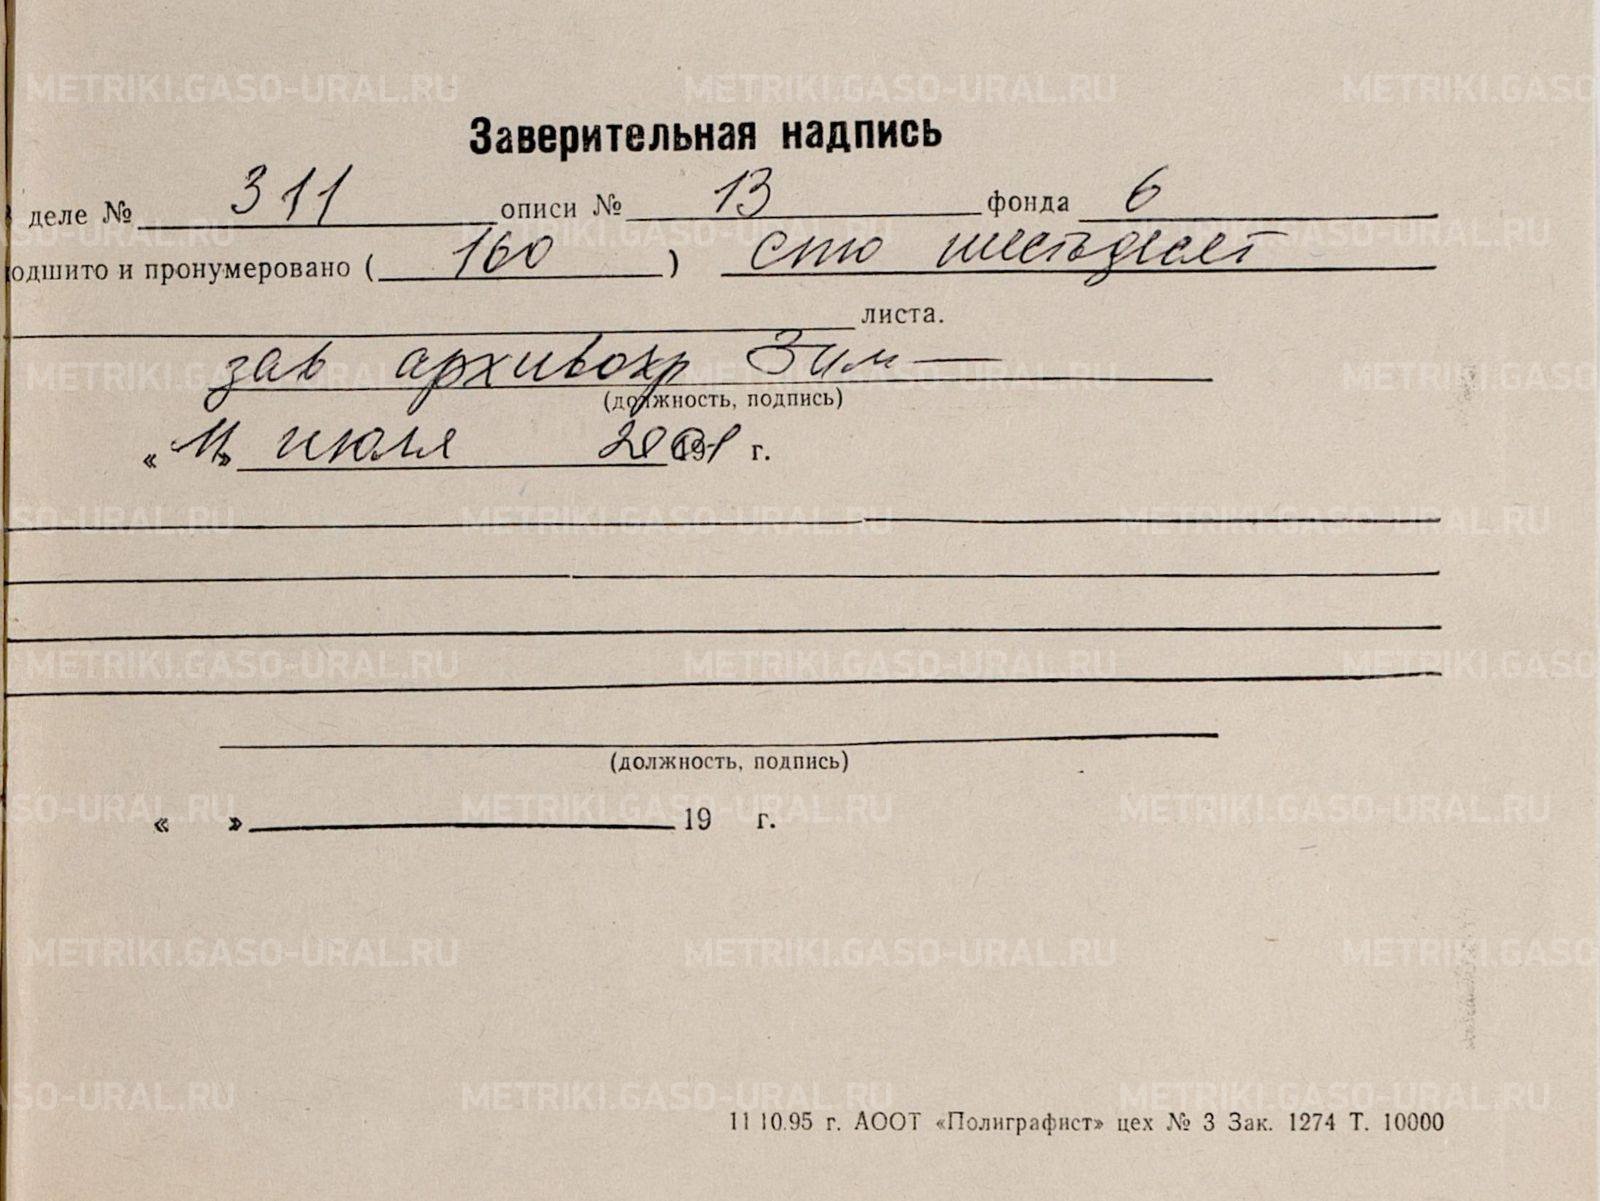 Заверительная надпись
В деле № 311 описи № 13 фонда 6
подшито и пронумеровано ( 160 ) сто шестьдесят
листа.
зав архивохр Зим
(должность, подпись)
« 11 » июля 2001 г.
(должность, подпись)
« » 19 г.
11 10.95 г. АООТ «Полиграфист» цех № 3 Зак. 1274 Т. 10000
METRIKI.GASO-URAL.RU